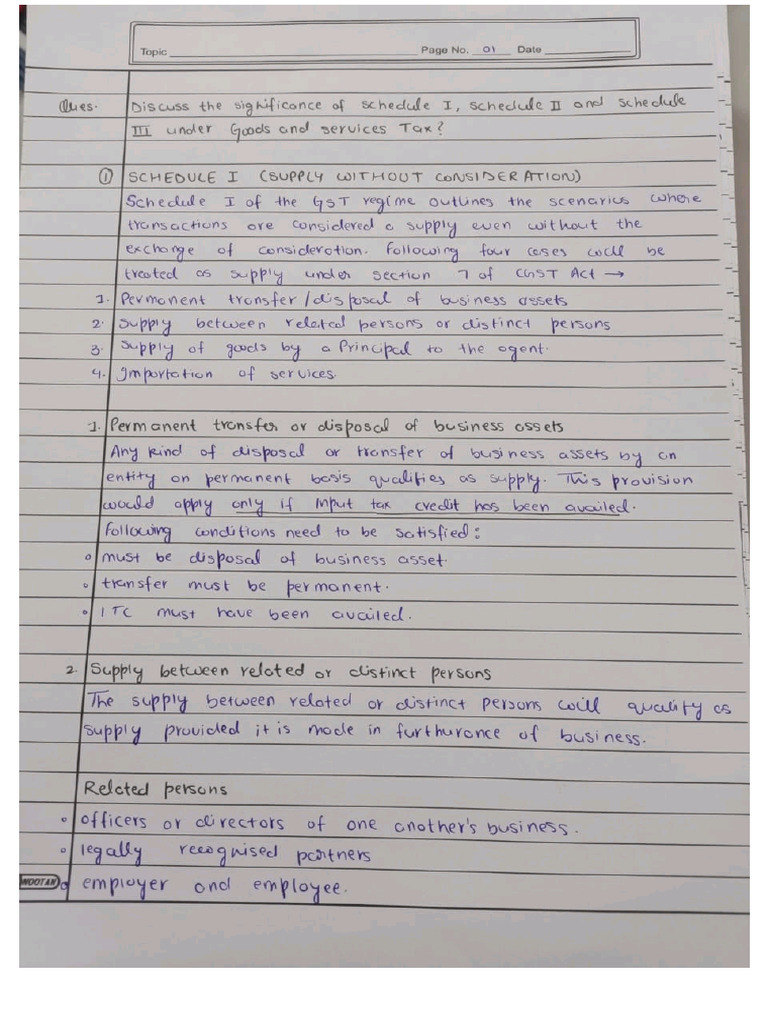 Topic Page No. 01 Date
Ques. Discuss the significance of schedule I, schedule II and schedule
III under Goods and services Tax?
① SCHEDULE I (SUPPLY WITHOUT CONSIDERATION)
Schedule I of the GST regime outlines the scenarius where
transactions are considered a supply even without the
exchange of consideration. Following four cases will be
treated as supply under section 7 of CGST Act →
1. Permanent transfer/disposal of business assets
2. Supply between related persons or distinct persons
3. Supply of goods by a Principal to the agent.
4. Importation of services.
1. Permanent transfer or disposal of business assets
Any kind of disposal or transfer of business assets by an
entity on permanent basis qualifies as supply. This provision
would apply only if Input tax credit has been availed.
Following conditions need to be satisfied:
o must be disposal of business asset.
o transfer must be permanent.
o ITC must have been availed.
2. Supply between related or distinct persons
The supply between related or distinct persons will qualify as
supply provided it is made in furthurance of business.
Related persons
o officers or directors of one another's business.
o legally recognised partners
NOOTAN o employer and employee.